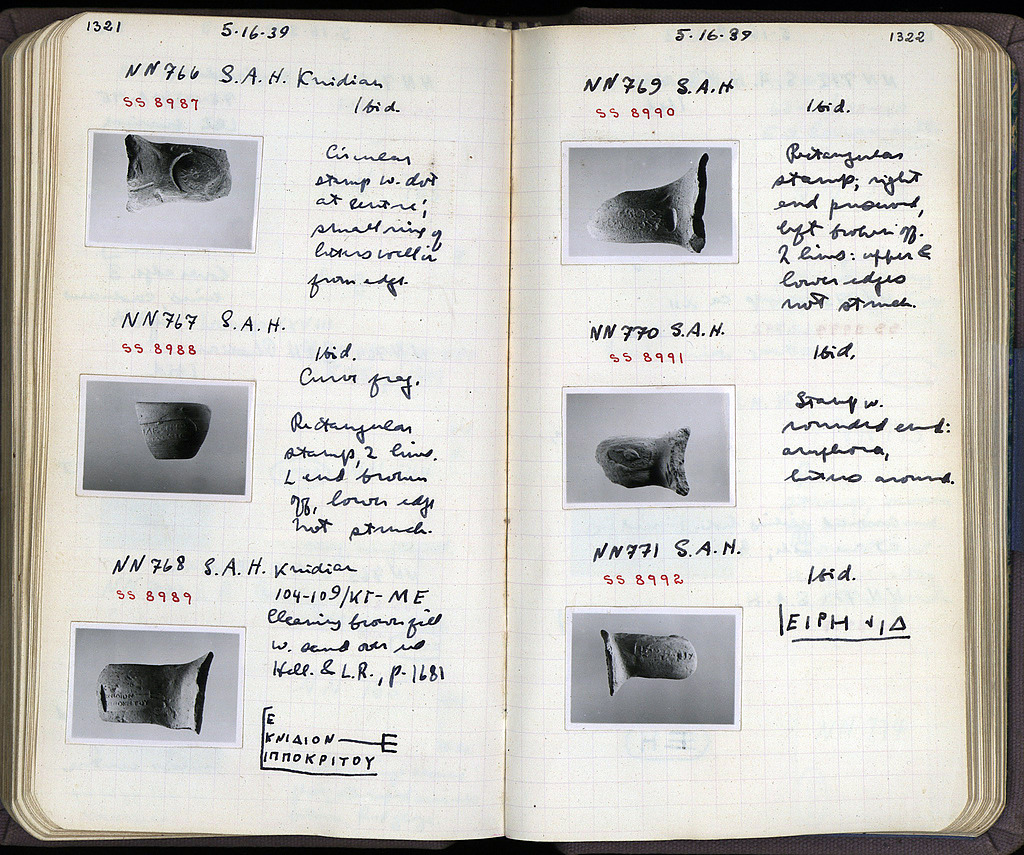 1321
5-16-39
NN 766 S.A.H. Knidian
SS 8987
Ibid.
Circular
stamp w. dot
at centre;
small ring of
letters well in
from edge.
NN 767 S.A.H.
SS 8988
Ibid.
Curve frag.
Rectangular
stamp, 2 lines.
L end broken
off, lower edge
not struck.
NN 768 S.A.H. Knidian
SS 8989
104-109/ΚΓ-ΜΕ
Cleaning brown fill
w. sand over
Hell. & L.R., p. 1681
Ε
ΚΝΙΔΙΟΝ Ε
ΙΠΠΟΚΡΙΤΟΥ
5-16-39
1322
NN 769 S.A.H
SS 8990
Ibid.
Rectangular
stamp; right
end preserved,
left broken off.
2 lines: upper &
lower edges
not struck.
NN 770 S.A.H.
SS 8991
Ibid.
Stamp w.
rounded end:
amphora,
letters around.
NN 771 S.A.H.
SS 8992
Ibid.
ΕΙΡΗΝΙΔ